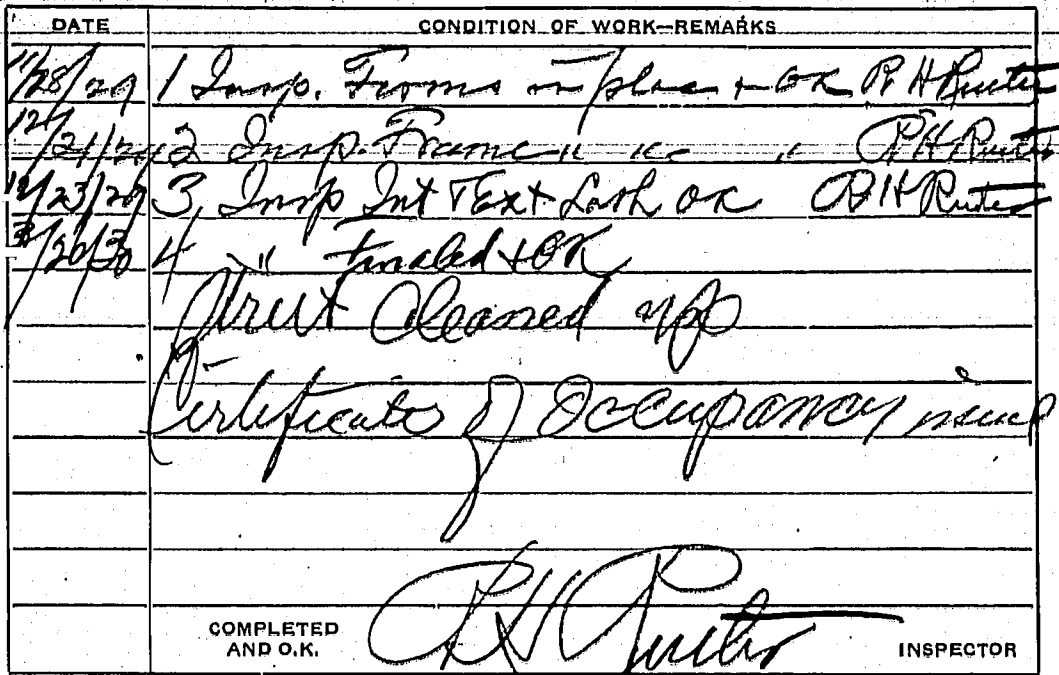 DATE CONDITION OF WORK—REMARKS
11/28/29 1 Insp. Forms in place + OK R H
12/21/29 2 Insp. Frame " " " R H
12/23/29 3 Insp Int & Ext Lath OK R H
3/20/30 4 " Finaled + OK
Street Cleaned up
Certificate of Occupancy issued
COMPLETED
AND O.K. R H INSPECTOR